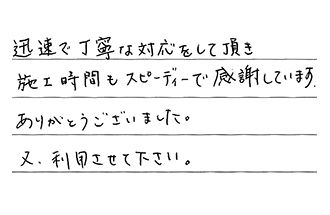 迅速で丁寧な対応をして頂き
施工時間もスピーディーで感謝しています.
ありがとうございました。
又、利用させて下さい。